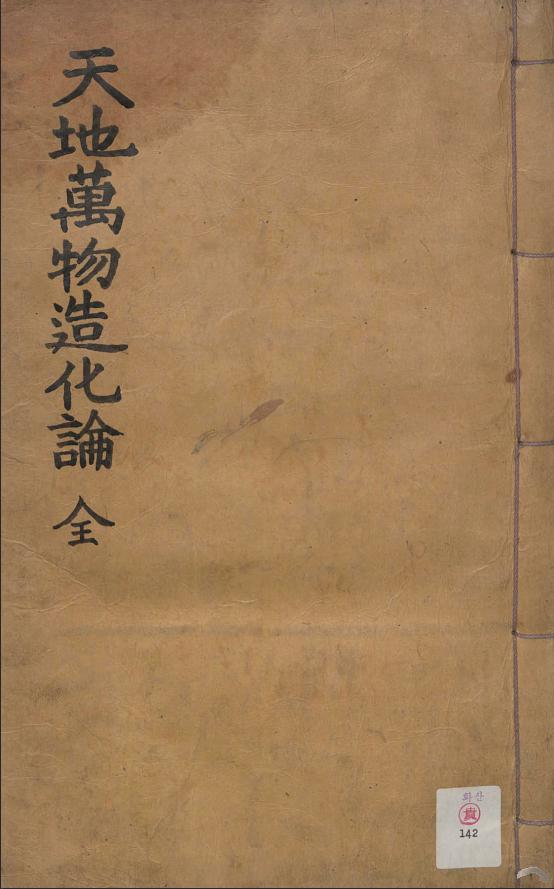 天地萬物造化論 全
화산
貴
142